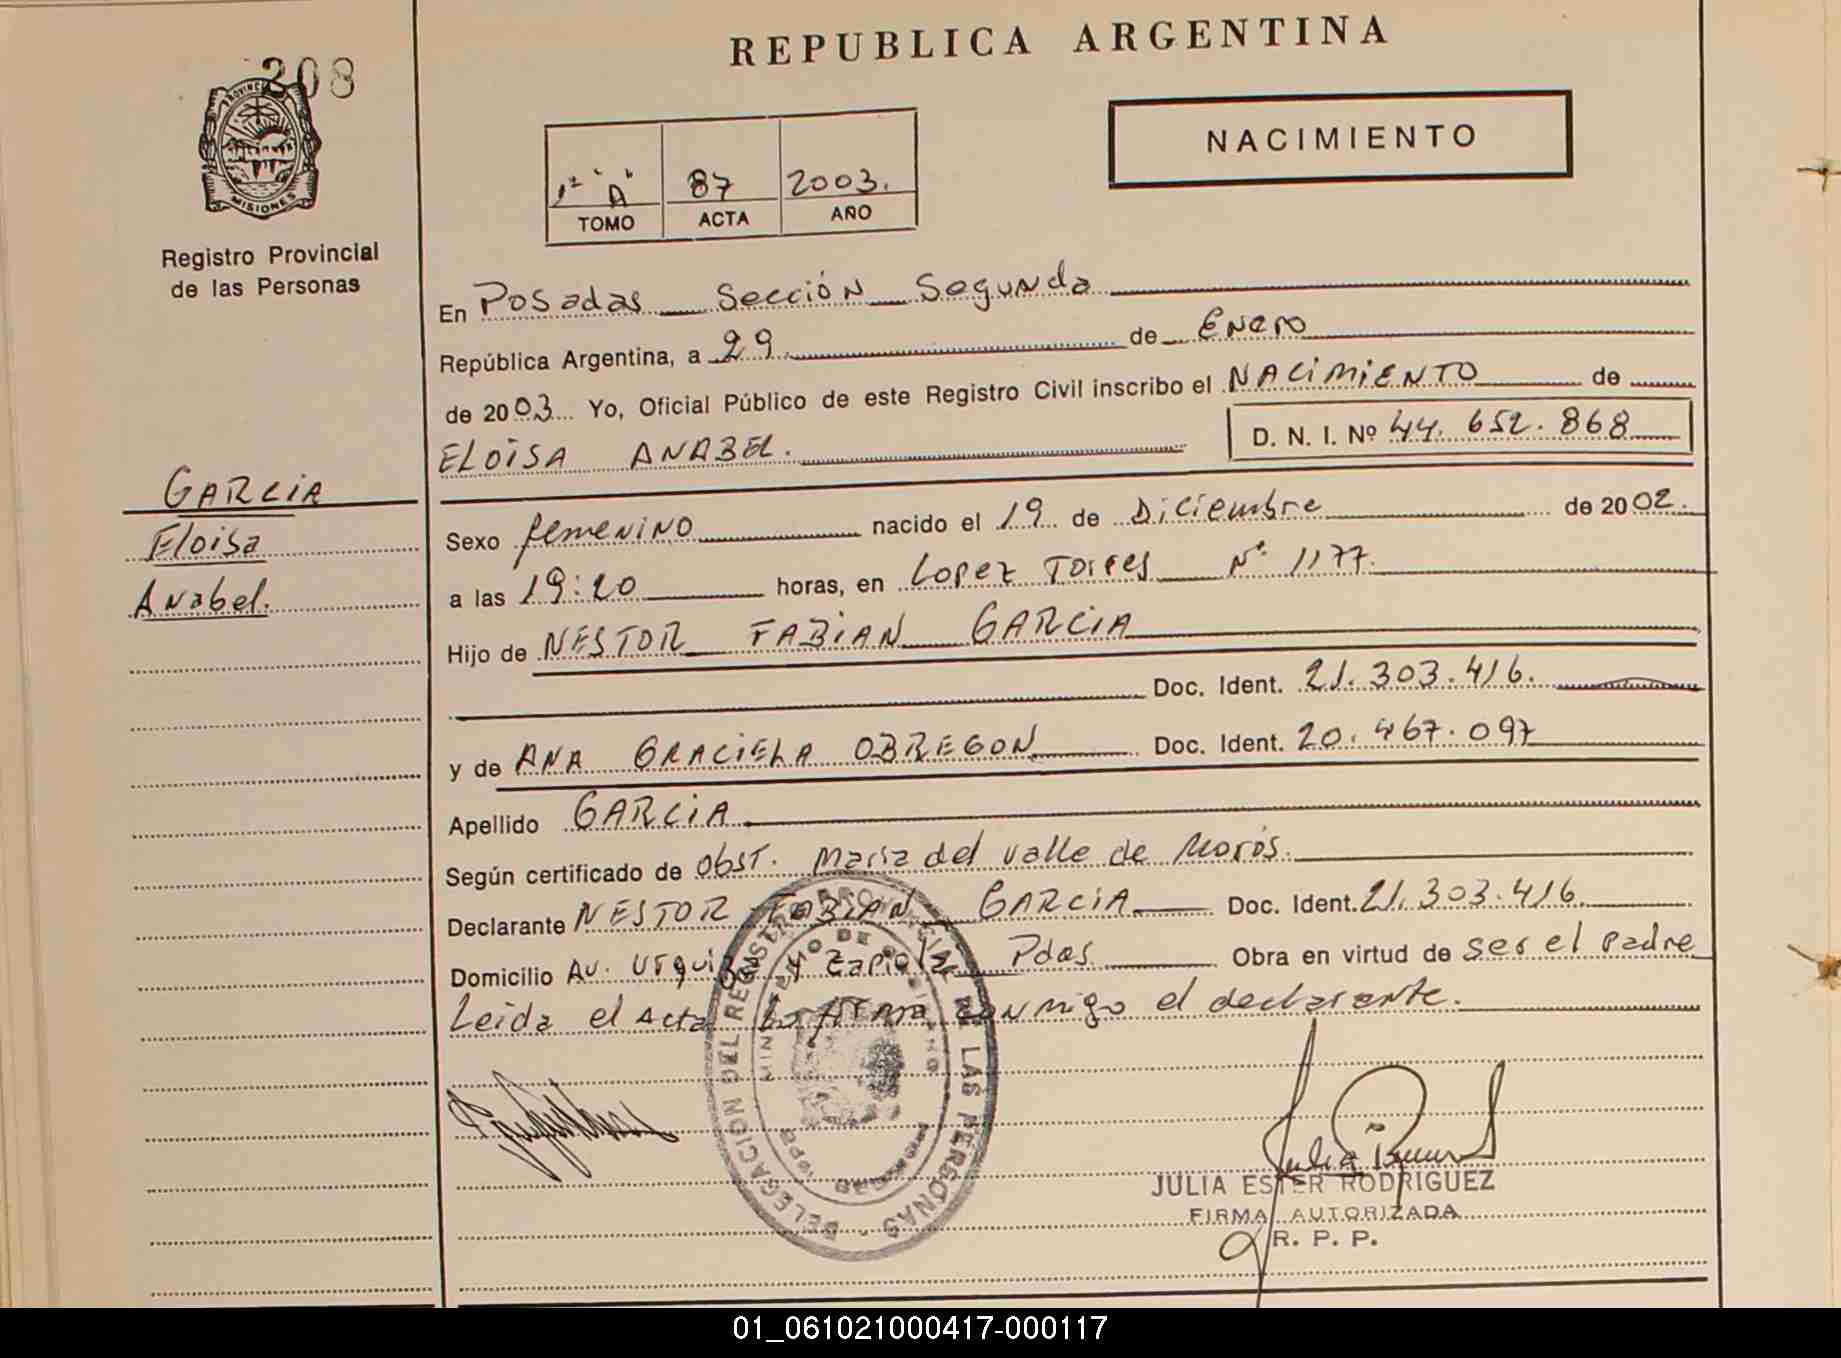 REPUBLICA ARGENTINA
208
PROVINCIA
MISIONES
Registro Provincial
de las Personas
NACIMIENTO
1º "A" 87 2003.
TOMO ACTA AÑO
En Posadas Sección Segunda
República Argentina, a 29 de Enero
de 2003 Yo, Oficial Público de este Registro Civil inscribo el NACIMIENTO de
ELOISA ANABEL. D. N. I. Nº 44. 652. 868
GARCIA
Eloisa
Anabel.
Sexo femenino nacido el 19 de Diciembre de 2002.
a las 19:20 horas, en Lopez Torres Nº 1177.
Hijo de NESTOR FABIAN GARCIA
Doc. Ident. 21.303.416.
y de ANA GRACIELA OBREGON Doc. Ident. 20.467.097
Apellido GARCIA
Según certificado de obst. Maria del valle de Moros.
Declarante NESTOR FABIAN GARCIA Doc. Ident. 21.303.416
Domicilio Av. Urquiza y Zapiola Pdas Obra en virtud de ser el padre
Leida el Acta la firma conmigo el declarante.
DELEGACION DEL REGISTRO PROVINCIAL DE LAS PERSONAS
MINISTERIO DE GOBIERNO
JULIA ESTER RODRIGUEZ
FIRMA AUTORIZADA
R. P. P.
01_061021000417-000117